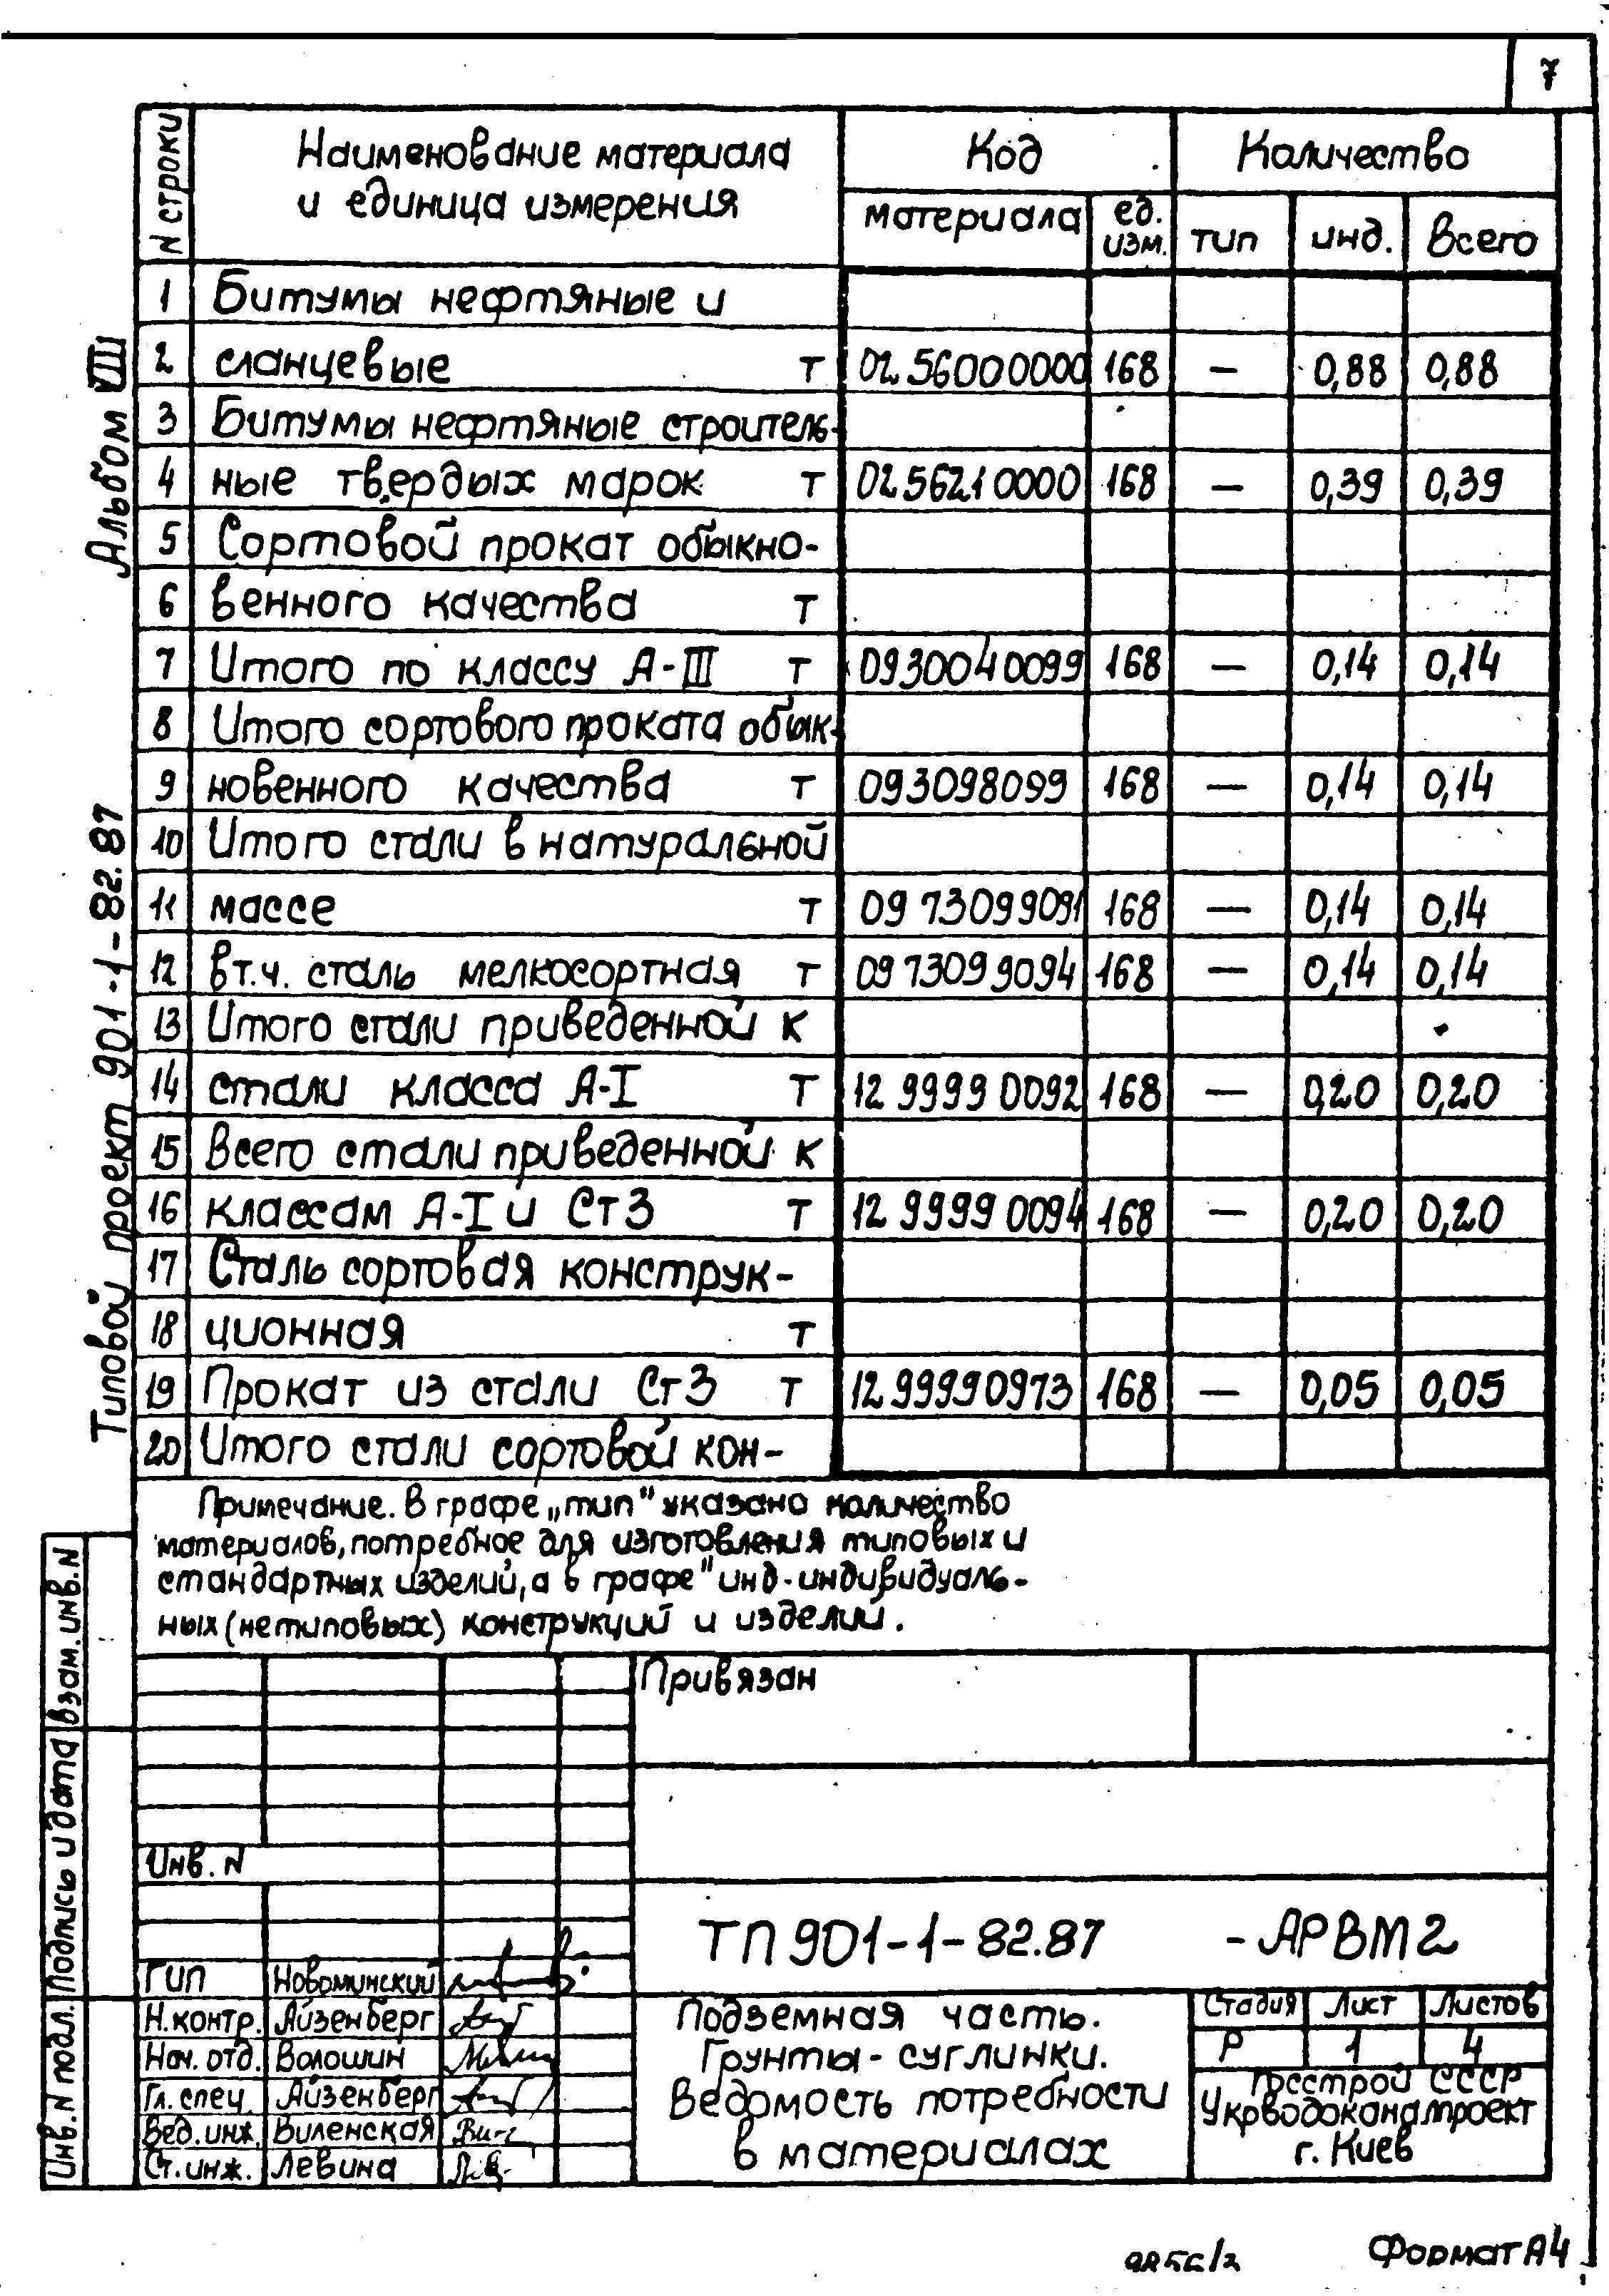 7
N строки
Наименование материала
и единица измерения
Код
Количество
материала
ед.
изм.
тип
инд.
всего
1 Битумы нефтяные и
2 сланцевые т 0256000000 168 — 0,88 0,88
3 Битумы нефтяные строитель-
4 ные твердых марок т 0256210000 168 — 0,39 0,39
5 Сортовой прокат обыкно-
6 венного качества т
7 Итого по классу А-III т 0930040099 168 — 0,14 0,14
8 Итого сортового проката обык-
9 новенного качества т 093098099 168 — 0,14 0,14
10 Итого стали в натуральной
11 массе т 0973099091 168 — 0,14 0,14
12 вт.ч. сталь мелкосортная т 0973099094 168 — 0,14 0,14
13 Итого стали приведенной к
14 стали класса А-I т 12 9999 0092 168 — 0,20 0,20
15 Всего стали приведенной к
16 классам А-I и Ст3 т 12 9999 0094 168 — 0,20 0,20
17 Сталь сортовая конструк-
18 ционная т
19 Прокат из стали Ст3 т 1299990973 168 — 0,05 0,05
20 Итого стали сортовой кон-
Примечание. В графе „тип" указано количество
материалов, потребное для изготовления типовых и
стандартных изделий, а в графе "инд-индивидуаль-
ных (нетиповых) конструкций и изделий.
Альбом VIII
Типовой проект 901-1-82.87
Взам. инв. N
Подпись и дата
Инв. N подл.
Привязан
Инв. N
ТП 901-1-82.87 -АРВМ2
ГИП Новоминский
Н.контр. Айзенберг
Нач. отд. Волошин
Гл. спец. Айзенберг
Вед. инж. Виленская
Ст. инж. Левина
Подземная часть.
Грунты-суглинки.
Ведомость потребности
в материалах
Стадия Лист Листов
Р 1 4
Госстрой СССР
Укрводоканалпроект
г. Киев
Формат А4